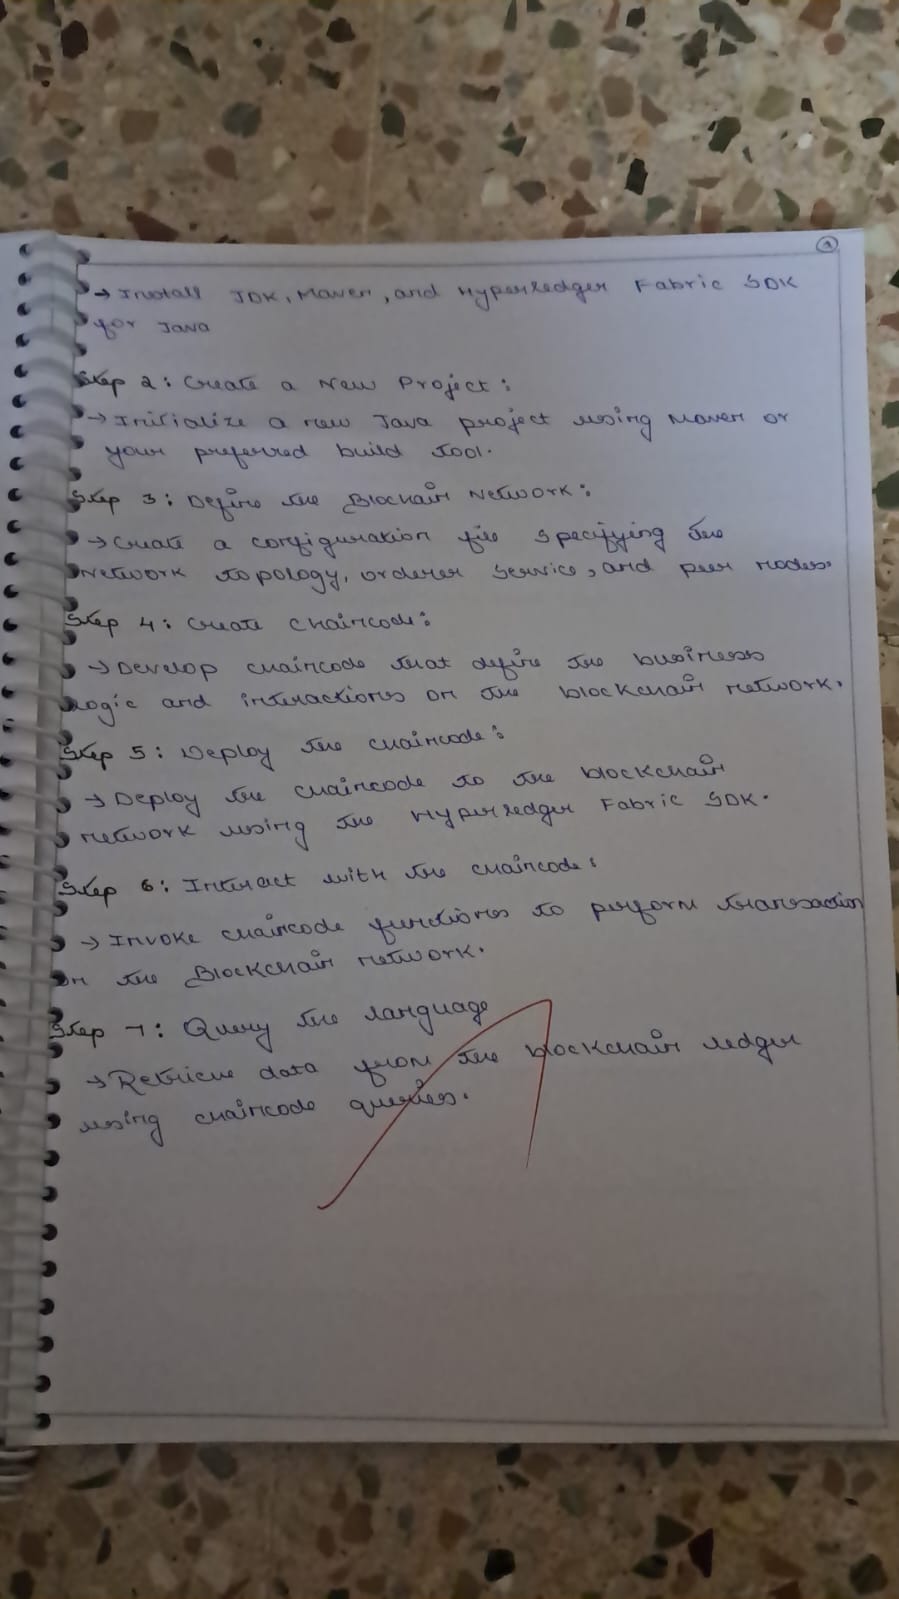 → Install JDK, Maven, and Hyperledger Fabric SDK
for Java
Step 2: Create a New Project:
→ Initialize a new Java project using Maven or
your preferred build tool.
Step 3: Define the Blochain Network:
→ Create a configuration file specifying the
Network topology, orderer service, and peer nodes.
Step 4: Create Chaincode:
→ Develop chaincode that define the business
logic and interactions on the blockchain network.
Step 5: Deploy the chaincode:
→ Deploy the chaincode to the blockchain
network using the Hyperledger Fabric SDK.
Step 6: Interact with the chaincode:
→ Invoke chaincode functions to perform transaction
on the Blockchain network.
Step 7: Query the language
→ Retrieve data from the blockchain ledger
using chaincode queries.